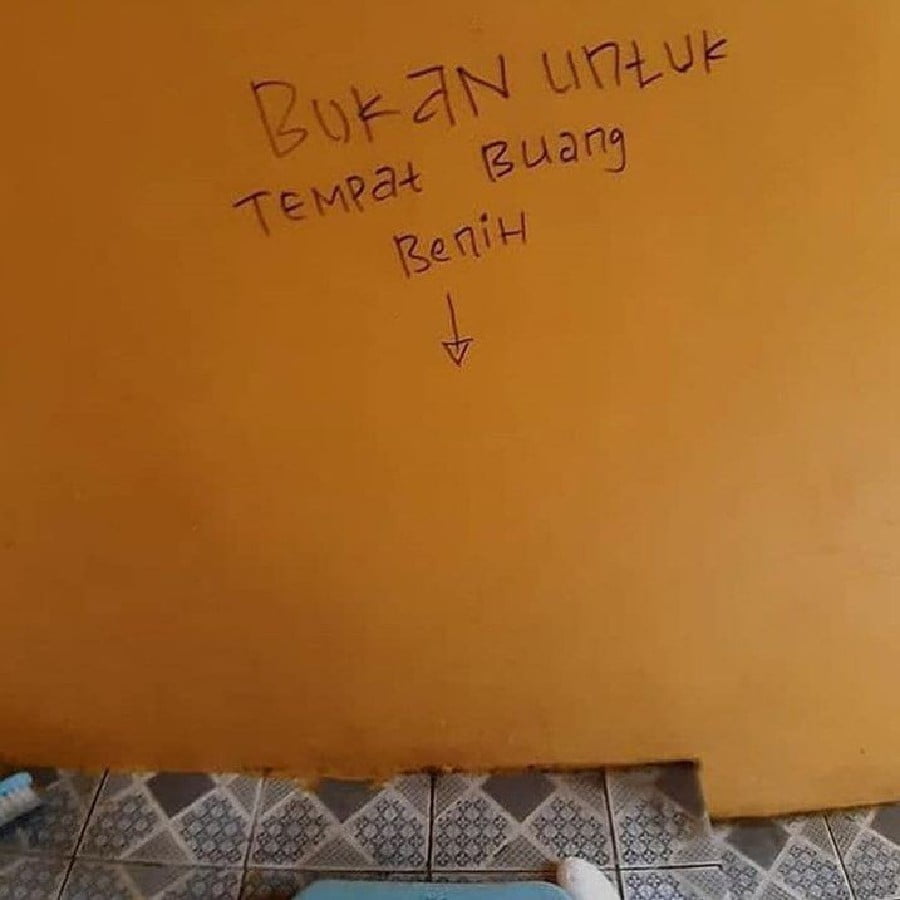 BUKAN UNTUK
TEMPAT BUANG
BENIH